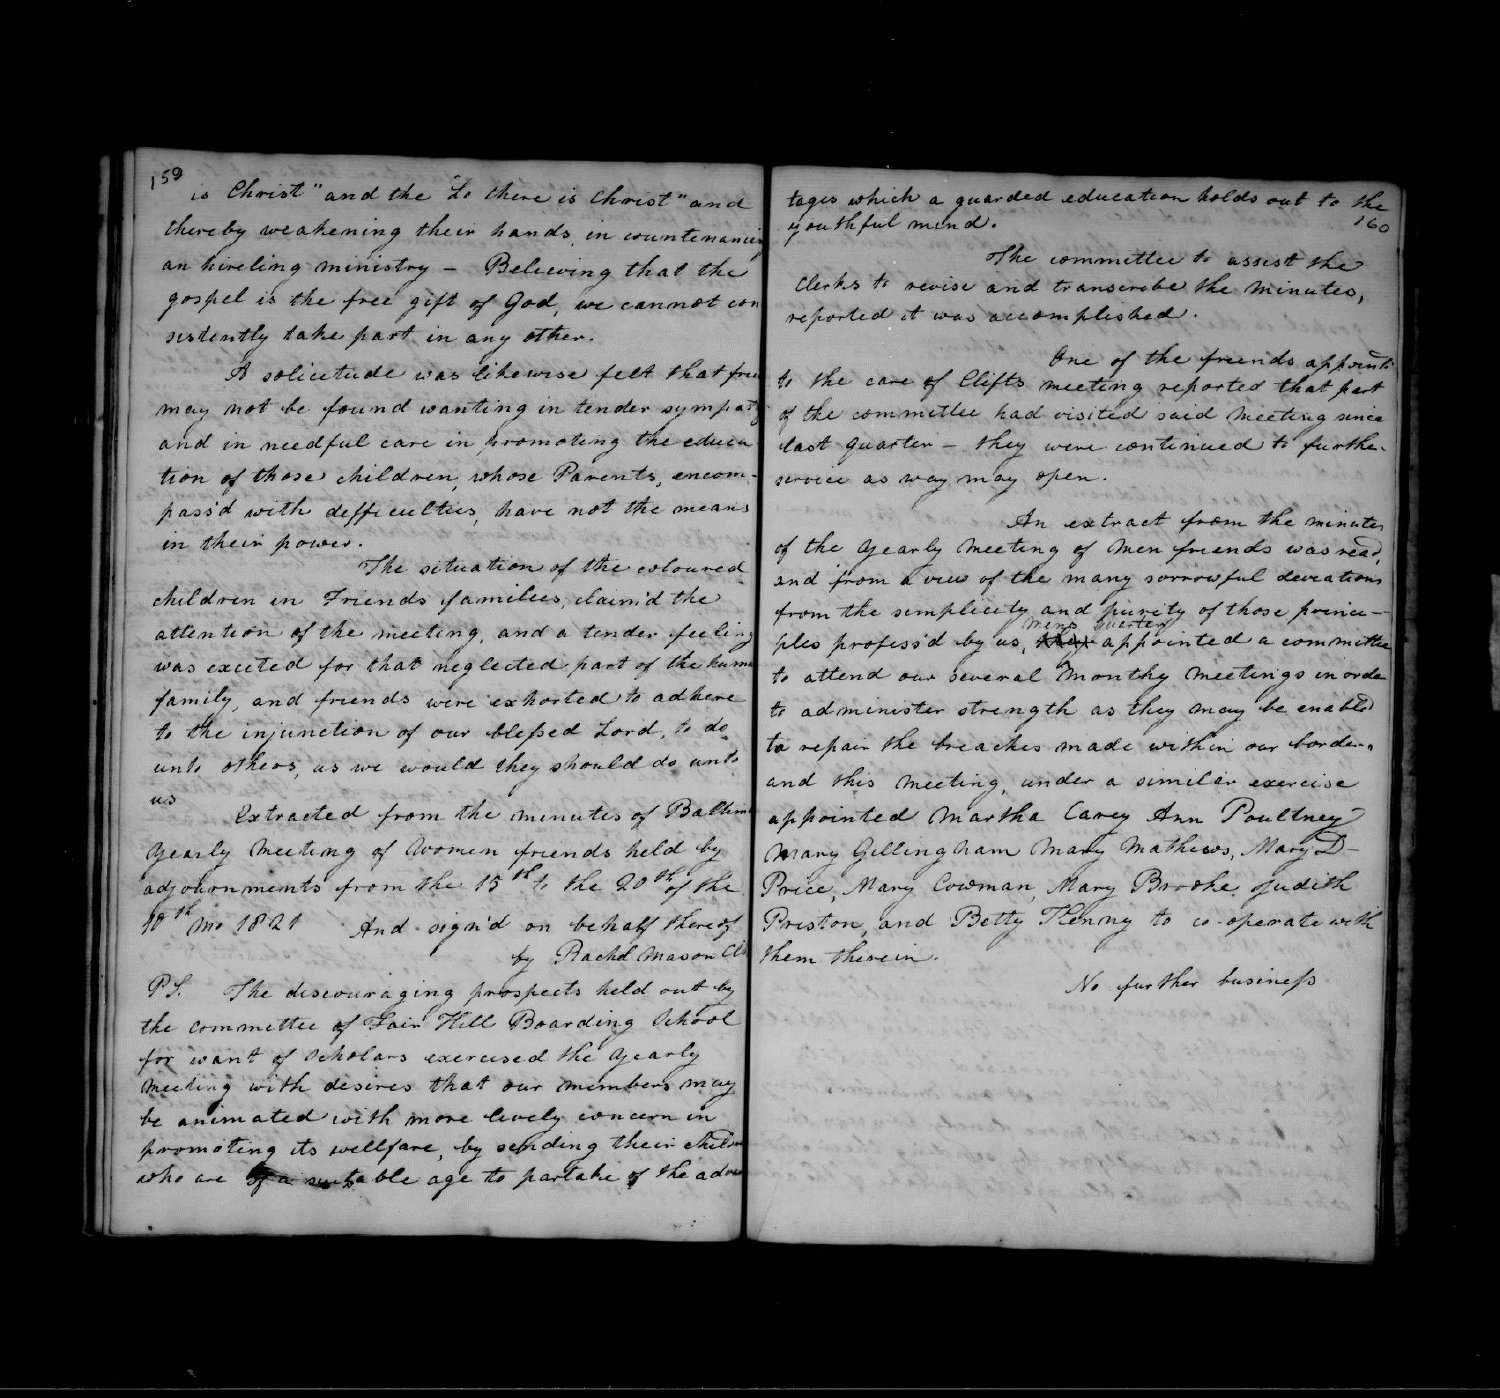 159
is Christ" and the "Lo there is Christ" and
thereby weakening their hands, in countenancing
an hireling ministry – Believing that the
gospel is the free gift of God, we cannot con
sistently take part in any other.
A solicitude was likewise felt that
may not be found wanting in tender sympathy
and in needful care in promoting the educa
tion of those children, whose Parents, encom-
pass'd with difficulties, have not the means
in their power.
The situation of the coloured
children in Friends families, claim'd the
attention of the meeting, and a tender feeling
was excited for that neglected part of the human
family, and friends were exhorted to adhere
to the injunction of our blessed Lord, to do
unto others, as we would they should do unto
us
Extracted from the minutes of Baltimo
Yearly Meeting of Women friends held by
adjournments from the 15th to the 20th of the
10th mo 1821 And sign'd on behalf thereof
by Rachel Mason Clk
P.S. The discouraging prospects held out by
the committee of Fair Hill Boarding School
for want of scholars exercised the Yearly
Meeting with desires that our members may
be animated with more lively concern in
promoting its wellfare, by sending their childn
who are of a suitable age to partake of the advan
tages which a guarded education holds out to the
160
youthful mind.
The committee to assist the
Clerks to revise and transcribe the Minutes,
reported it was accomplished.
One of the friends appointd
to the care of Clifts meeting reported that part
of the committee had visited said Meeting since
last quarter – they were continued to further
service as way may open.
An extract from the minutes
of the Yearly Meeting of Men friends was read,
and from a view of the many sorrowful deviations
from the simplicity and purity of those princi-
mens quarter
ples profess'd by us, they appointed a committee
to attend our several Monthy Meetings in order
to administer strength as they may be enabled
to repair the breaches made within our borders
and this Meeting, under a similar exercise
appointed Martha Carey Ann Poultney
Mary Gillingham Mary Mathews, Mary D–
Price, Mary Cowman, Mary Brooke, Judith
Preston, and Betty Kenny to co-operate with
them therein.
No further business